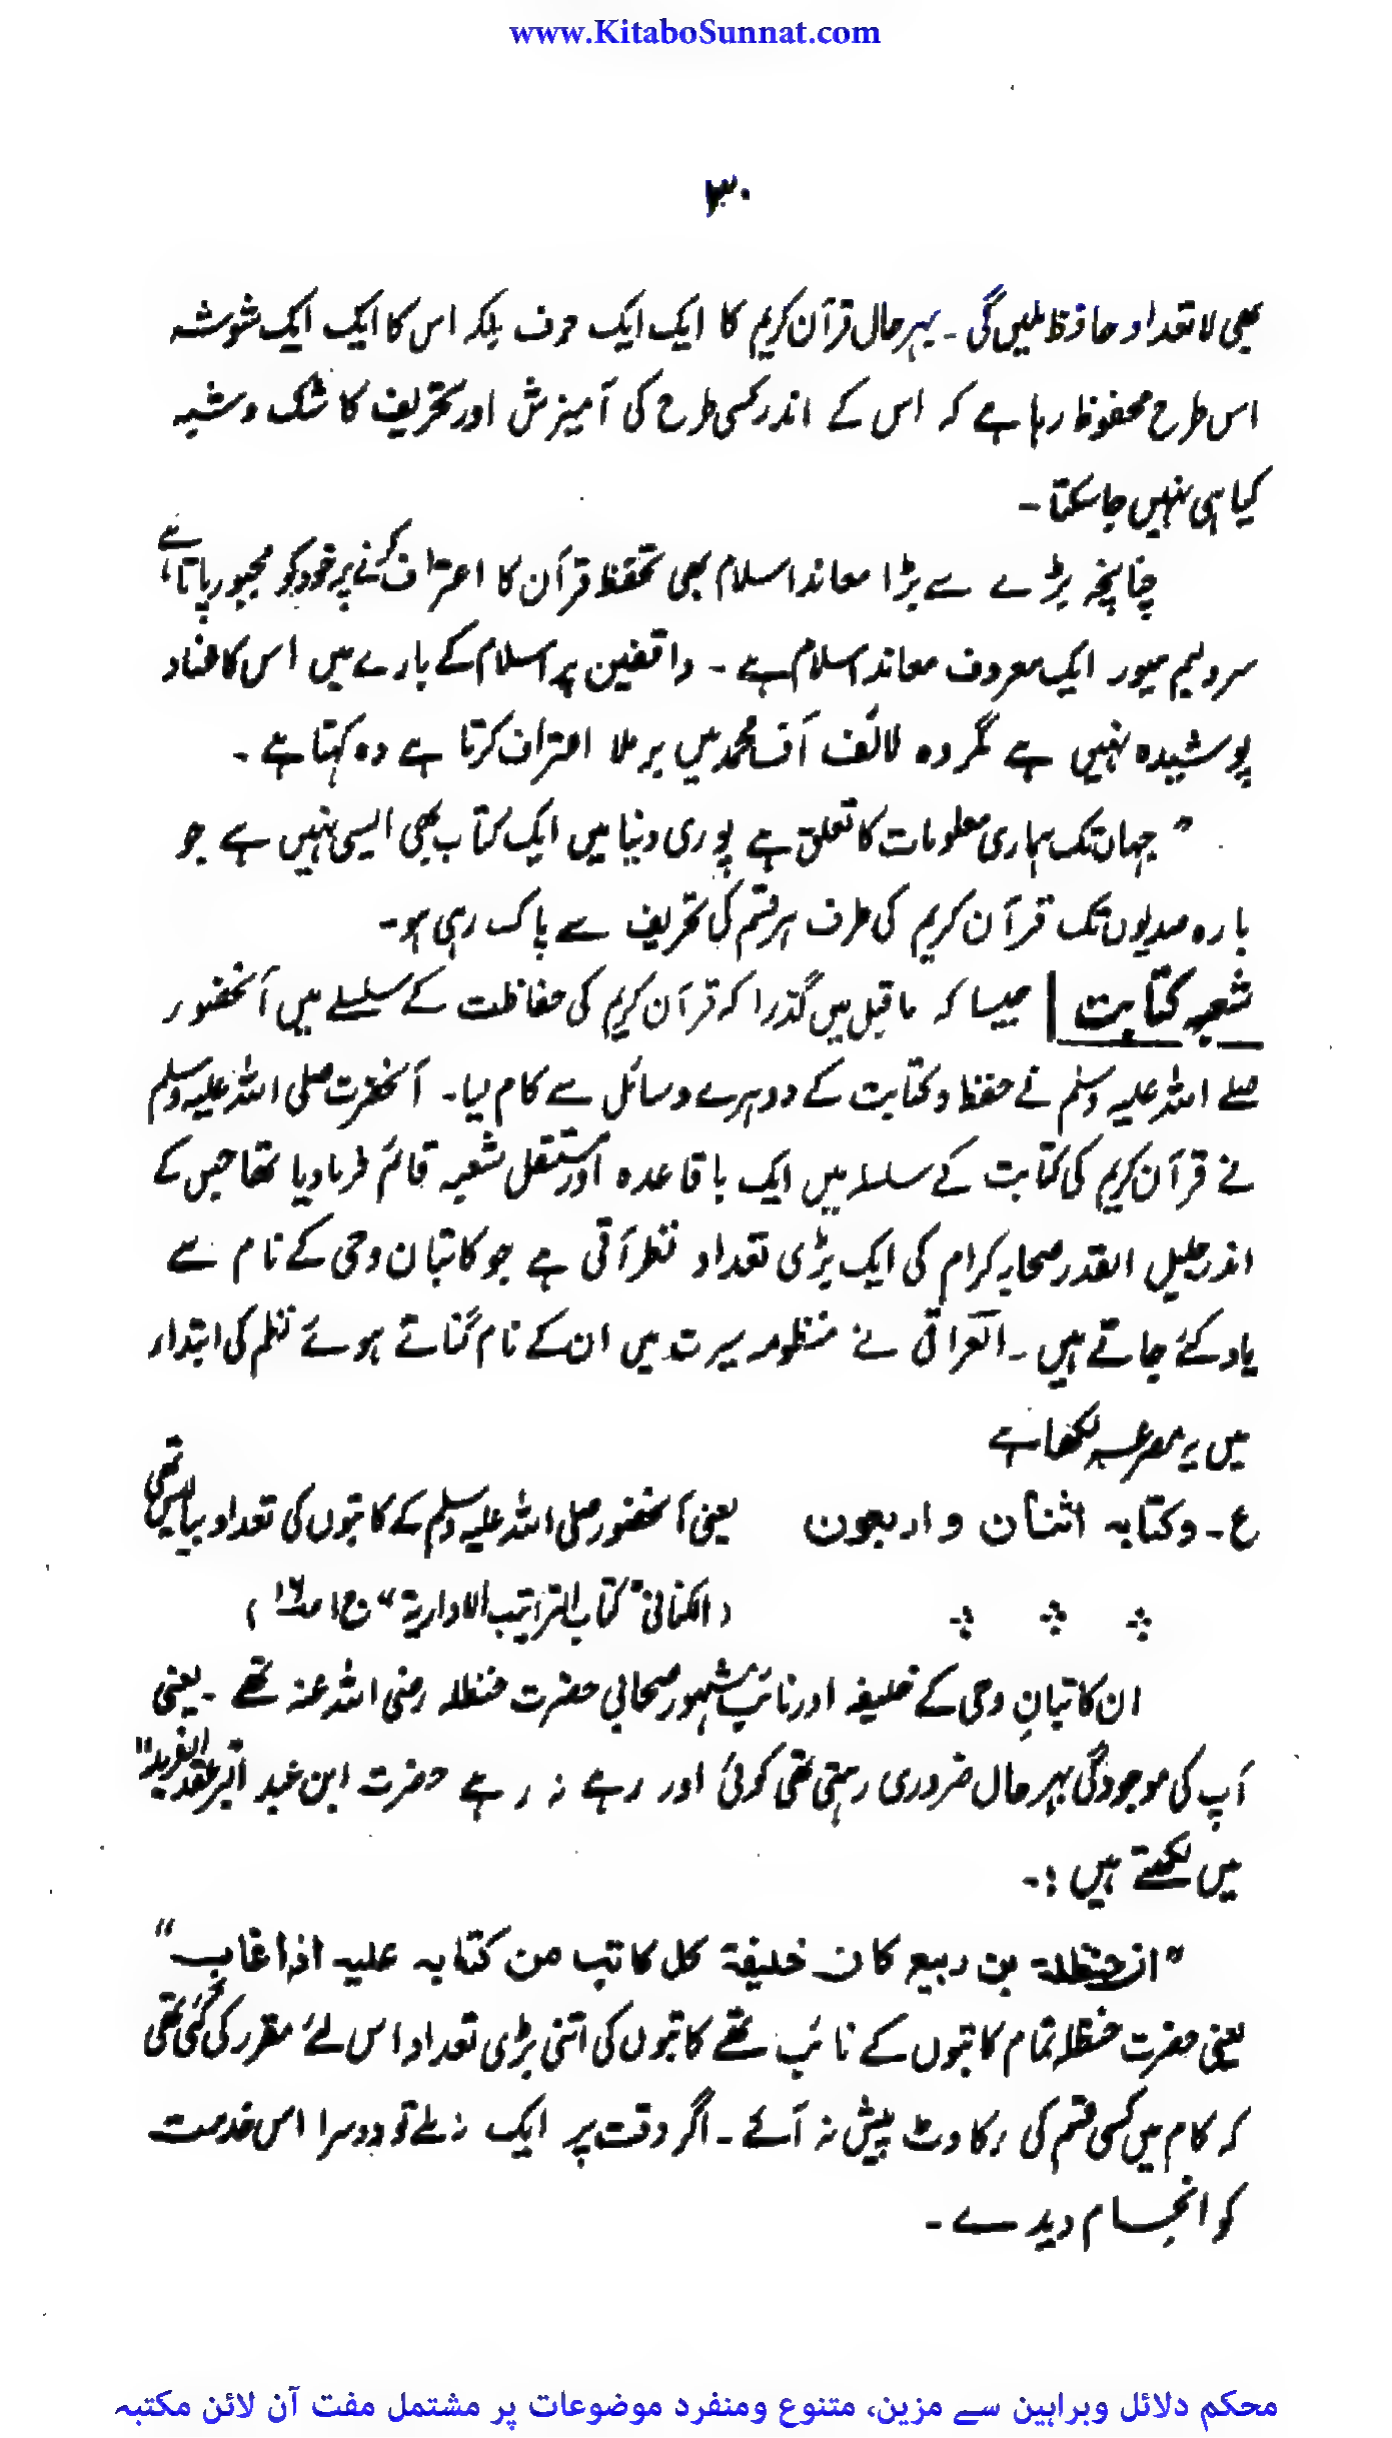 www.KitaboSunnat.com
۳۰
بھی لاتعداد حافظ ملیں گی ۔ بہرحال قرآن کریم کا ایک ایک حرف بلکہ اس کا ایک ایک شوشہ
اس طرح محفوظ رہا ہے کہ اس کے اندر کسی طرح کی آمیزش اور تحریف کا شک و شبہ
کیا ہی نہیں جاسکتا ۔
چنانچہ بڑے سے بڑا معاند اسلام بھی تحفظ قرآن کا اعتراف کرنے پر خود کو مجبور پاتا ہے،
سر ولیم میور ایک معروف معاند اسلام ہے ۔ واقفین پر اسلام کے بارے میں اس کا عناد
پوشیدہ نہیں ہے مگر وہ لائف آف محمد میں برملا اعتراف کرتا ہے وہ کہتا ہے ۔
" جہاں تک ہماری معلومات کا تعلق ہے پوری دنیا میں ایک کتاب بھی ایسی نہیں ہے جو
بارہ صدیوں تک قرآن کریم کی طرف ہر قسم کی تحریف سے پاک رہی ہو ۔
شعبہ کتابت | جیسا کہ ماقبل میں گذرا کہ قرآن کریم کی حفاظت کے سلسلے میں آنحضور
صلے اللہ علیہ وسلم نے حفظ و کتابت کے دوہرے وسائل سے کام لیا ۔ آنحضرت صلی اللہ علیہ وسلم
نے قرآن کریم کی کتابت کے سلسلہ میں ایک باقاعدہ اور مستقل شعبہ قائم فرما دیا تھا جس کے
اندر جلیل القدر صحابہ کرام کی ایک بڑی تعداد نظر آتی ہے جو کاتبان وحی کے نام سے
یاد کئے جاتے ہیں ۔ العراقی نے منظومہ سیرت میں ان کے نام گناتے ہوئے نظم کی ابتداء
میں یہ مصرعہ لکھا ہے
ع ۔ وکتابہ اثنان و اربعون یعنی آنحضور صلی اللہ علیہ وسلم کے کاتبوں کی تعداد بیالیس تھی
(الکتانی "کتاب التراتیب الاداریۃ" ج۱ ص۱۶)
ان کاتبانِ وحی کے خلیفہ اور نائب مشہور صحابی حضرت حنظلہ رضی اللہ عنہ تھے ۔ یعنی
آپ کی موجودگی بہر حال ضروری رہتی تھی کوئی اور رہے نہ رہے حضرت ابن عبد البر عقد الفرید"
میں لکھتے ہیں :۔
"ان حنظلۃ بن ربیع کان خلیفۃ کل کاتب من کتابہ علیہ اذا غاب"
یعنی حضرت حنظلہ تمام کاتبوں کے نائب تھے کاتبوں کی اتنی بڑی تعداد اس لئے مقرر کی گئی تھی
کہ کام میں کسی قسم کی رکاوٹ پیش نہ آئے ۔ اگر وقت پر ایک نہ ملے تو دوسرا اس خدمت
کو انجام دیدے ۔
محکم دلائل وبراہین سے مزین، متنوع ومنفرد موضوعات پر مشتمل مفت آن لائن مکتبہ